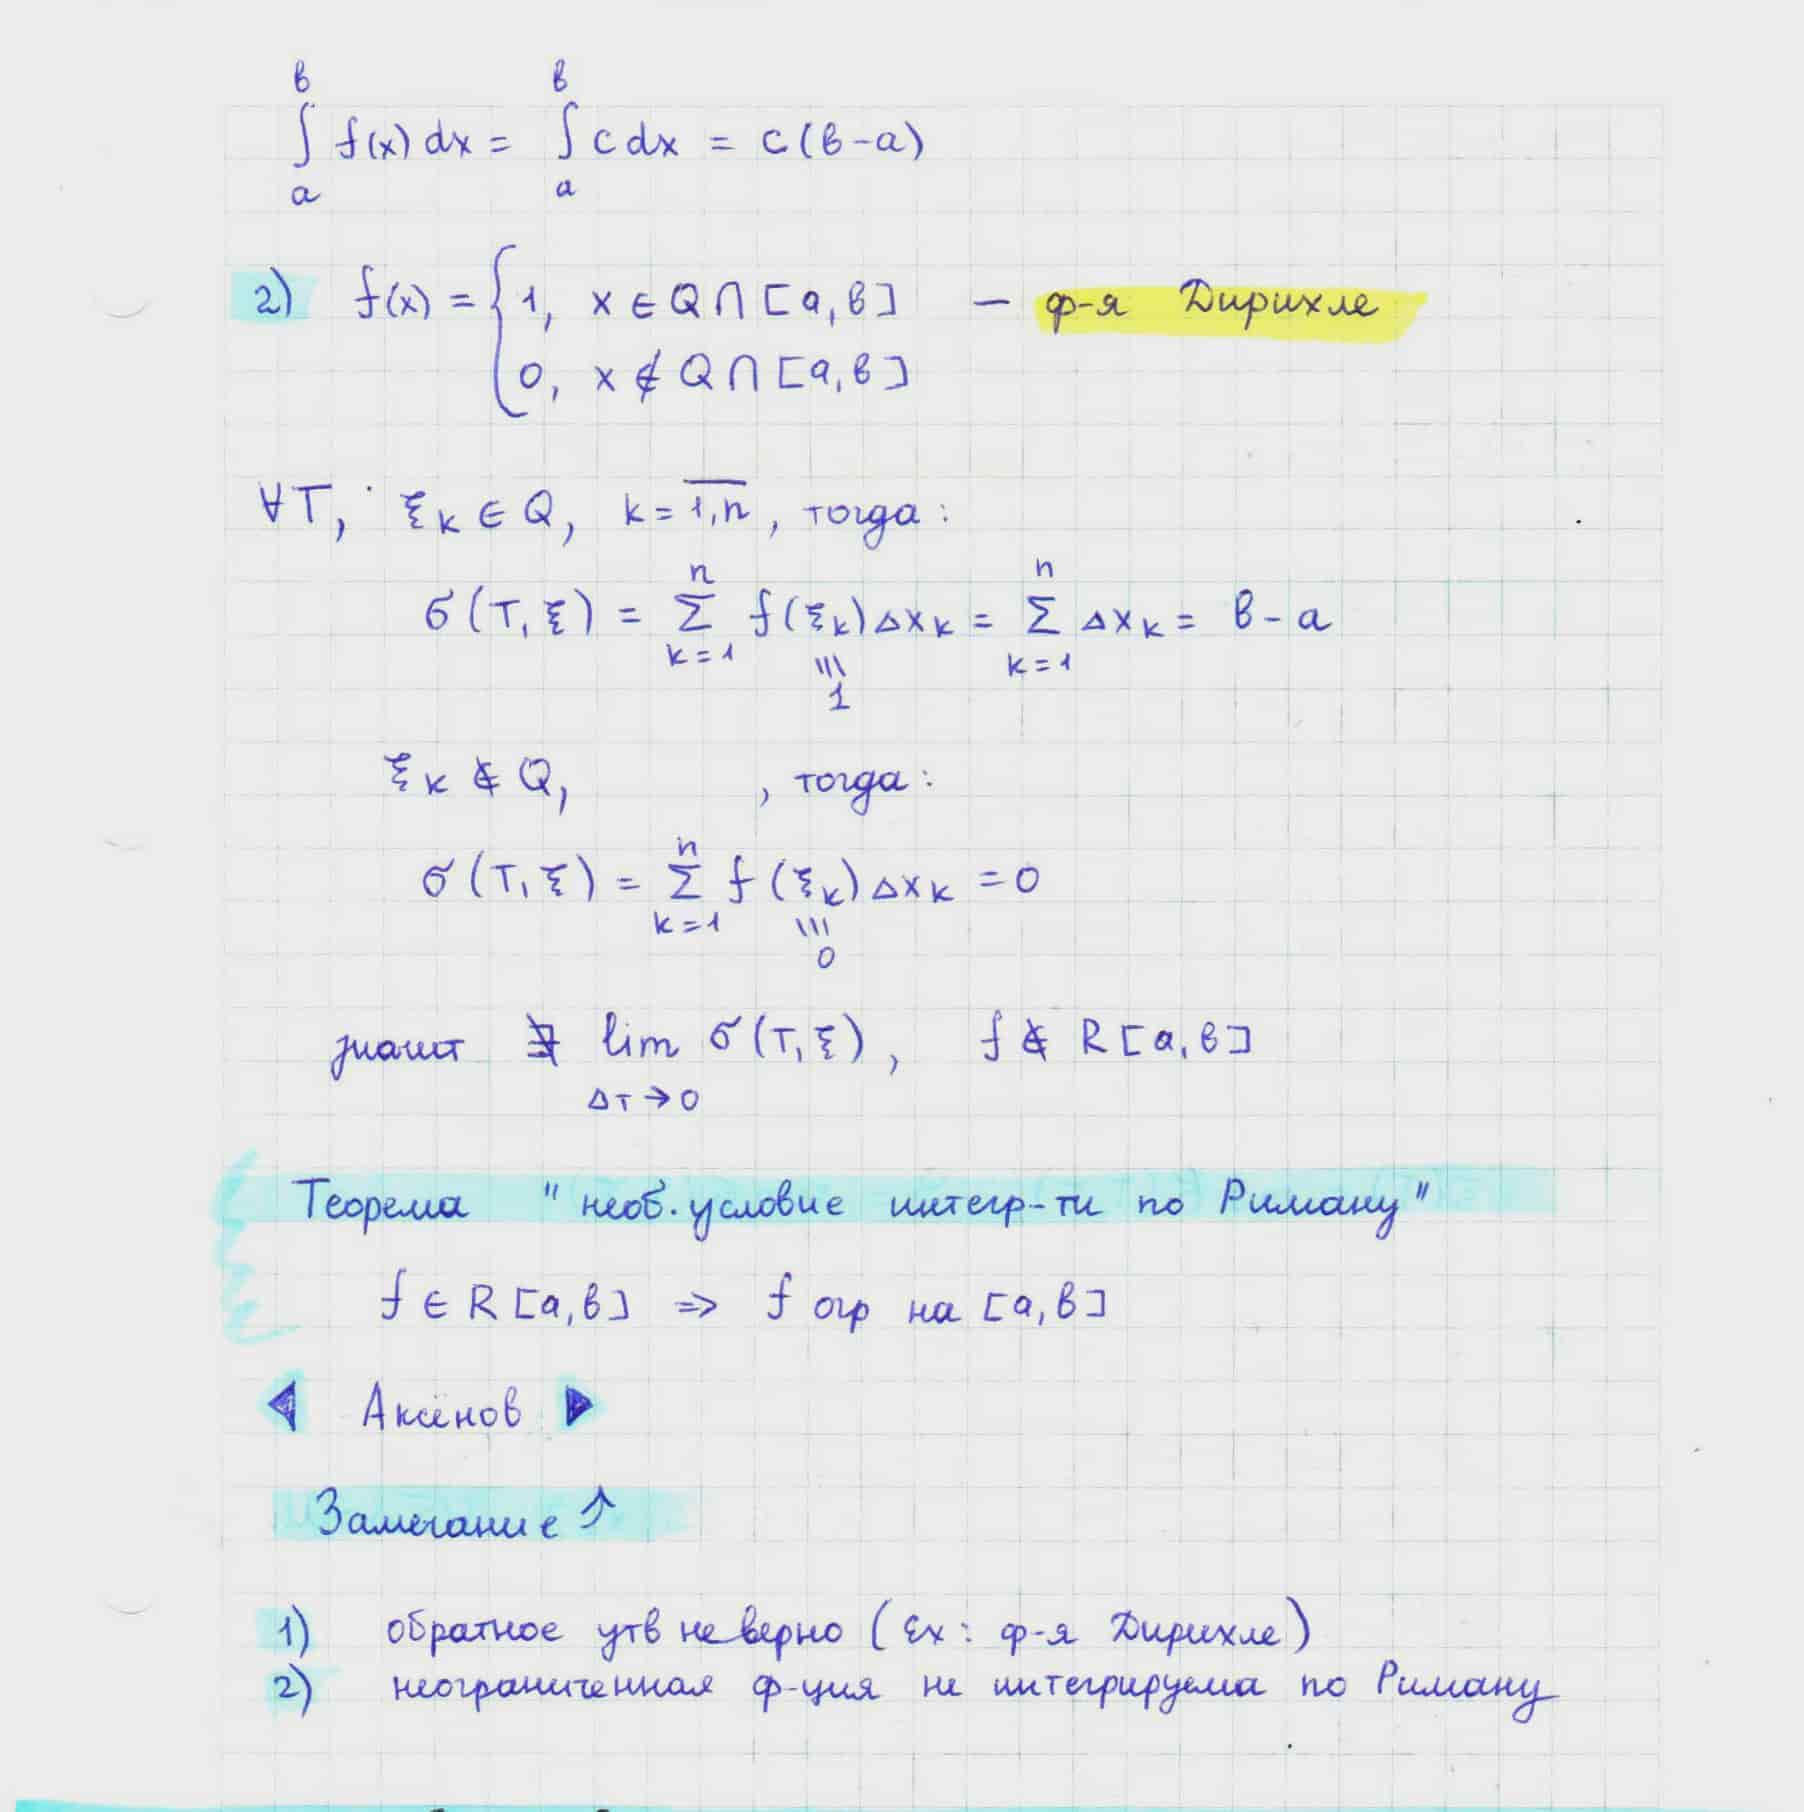 ∫_a^b f(x) dx = ∫_a^b c dx = c(b-a)
2) f(x) = { 1, x ∈ Q ∩ [a, b] — ф-я Дирихле
0, x ∉ Q ∩ [a, b]
∀T, ξ_k ∈ Q, k = \overline{1, n}, тогда:
σ(T, ξ) = ∑_{k=1}^n f(ξ_k) Δx_k = ∑_{k=1}^n Δx_k = b - a
≡
1
ξ_k ∉ Q, , тогда:
σ(T, ξ) = ∑_{k=1}^n f(ξ_k) Δx_k = 0
≡
0
значит ∄ lim_{Δ_T → 0} σ(T, ξ), f ∉ R[a, b]
Теорема "необ. условие интегр-ти по Риману"
f ∈ R[a, b] => f огр на [a, b]
◀ Аксёнов ▶
Замечание ↑
1) обратное утв неверно (Ex: ф-я Дирихле)
2) неограниченная ф-ция не интегрируема по Риману